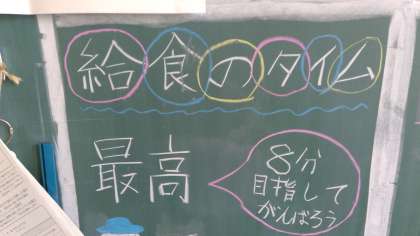 給食のタイム
最高
8分
目指して
がんばろう